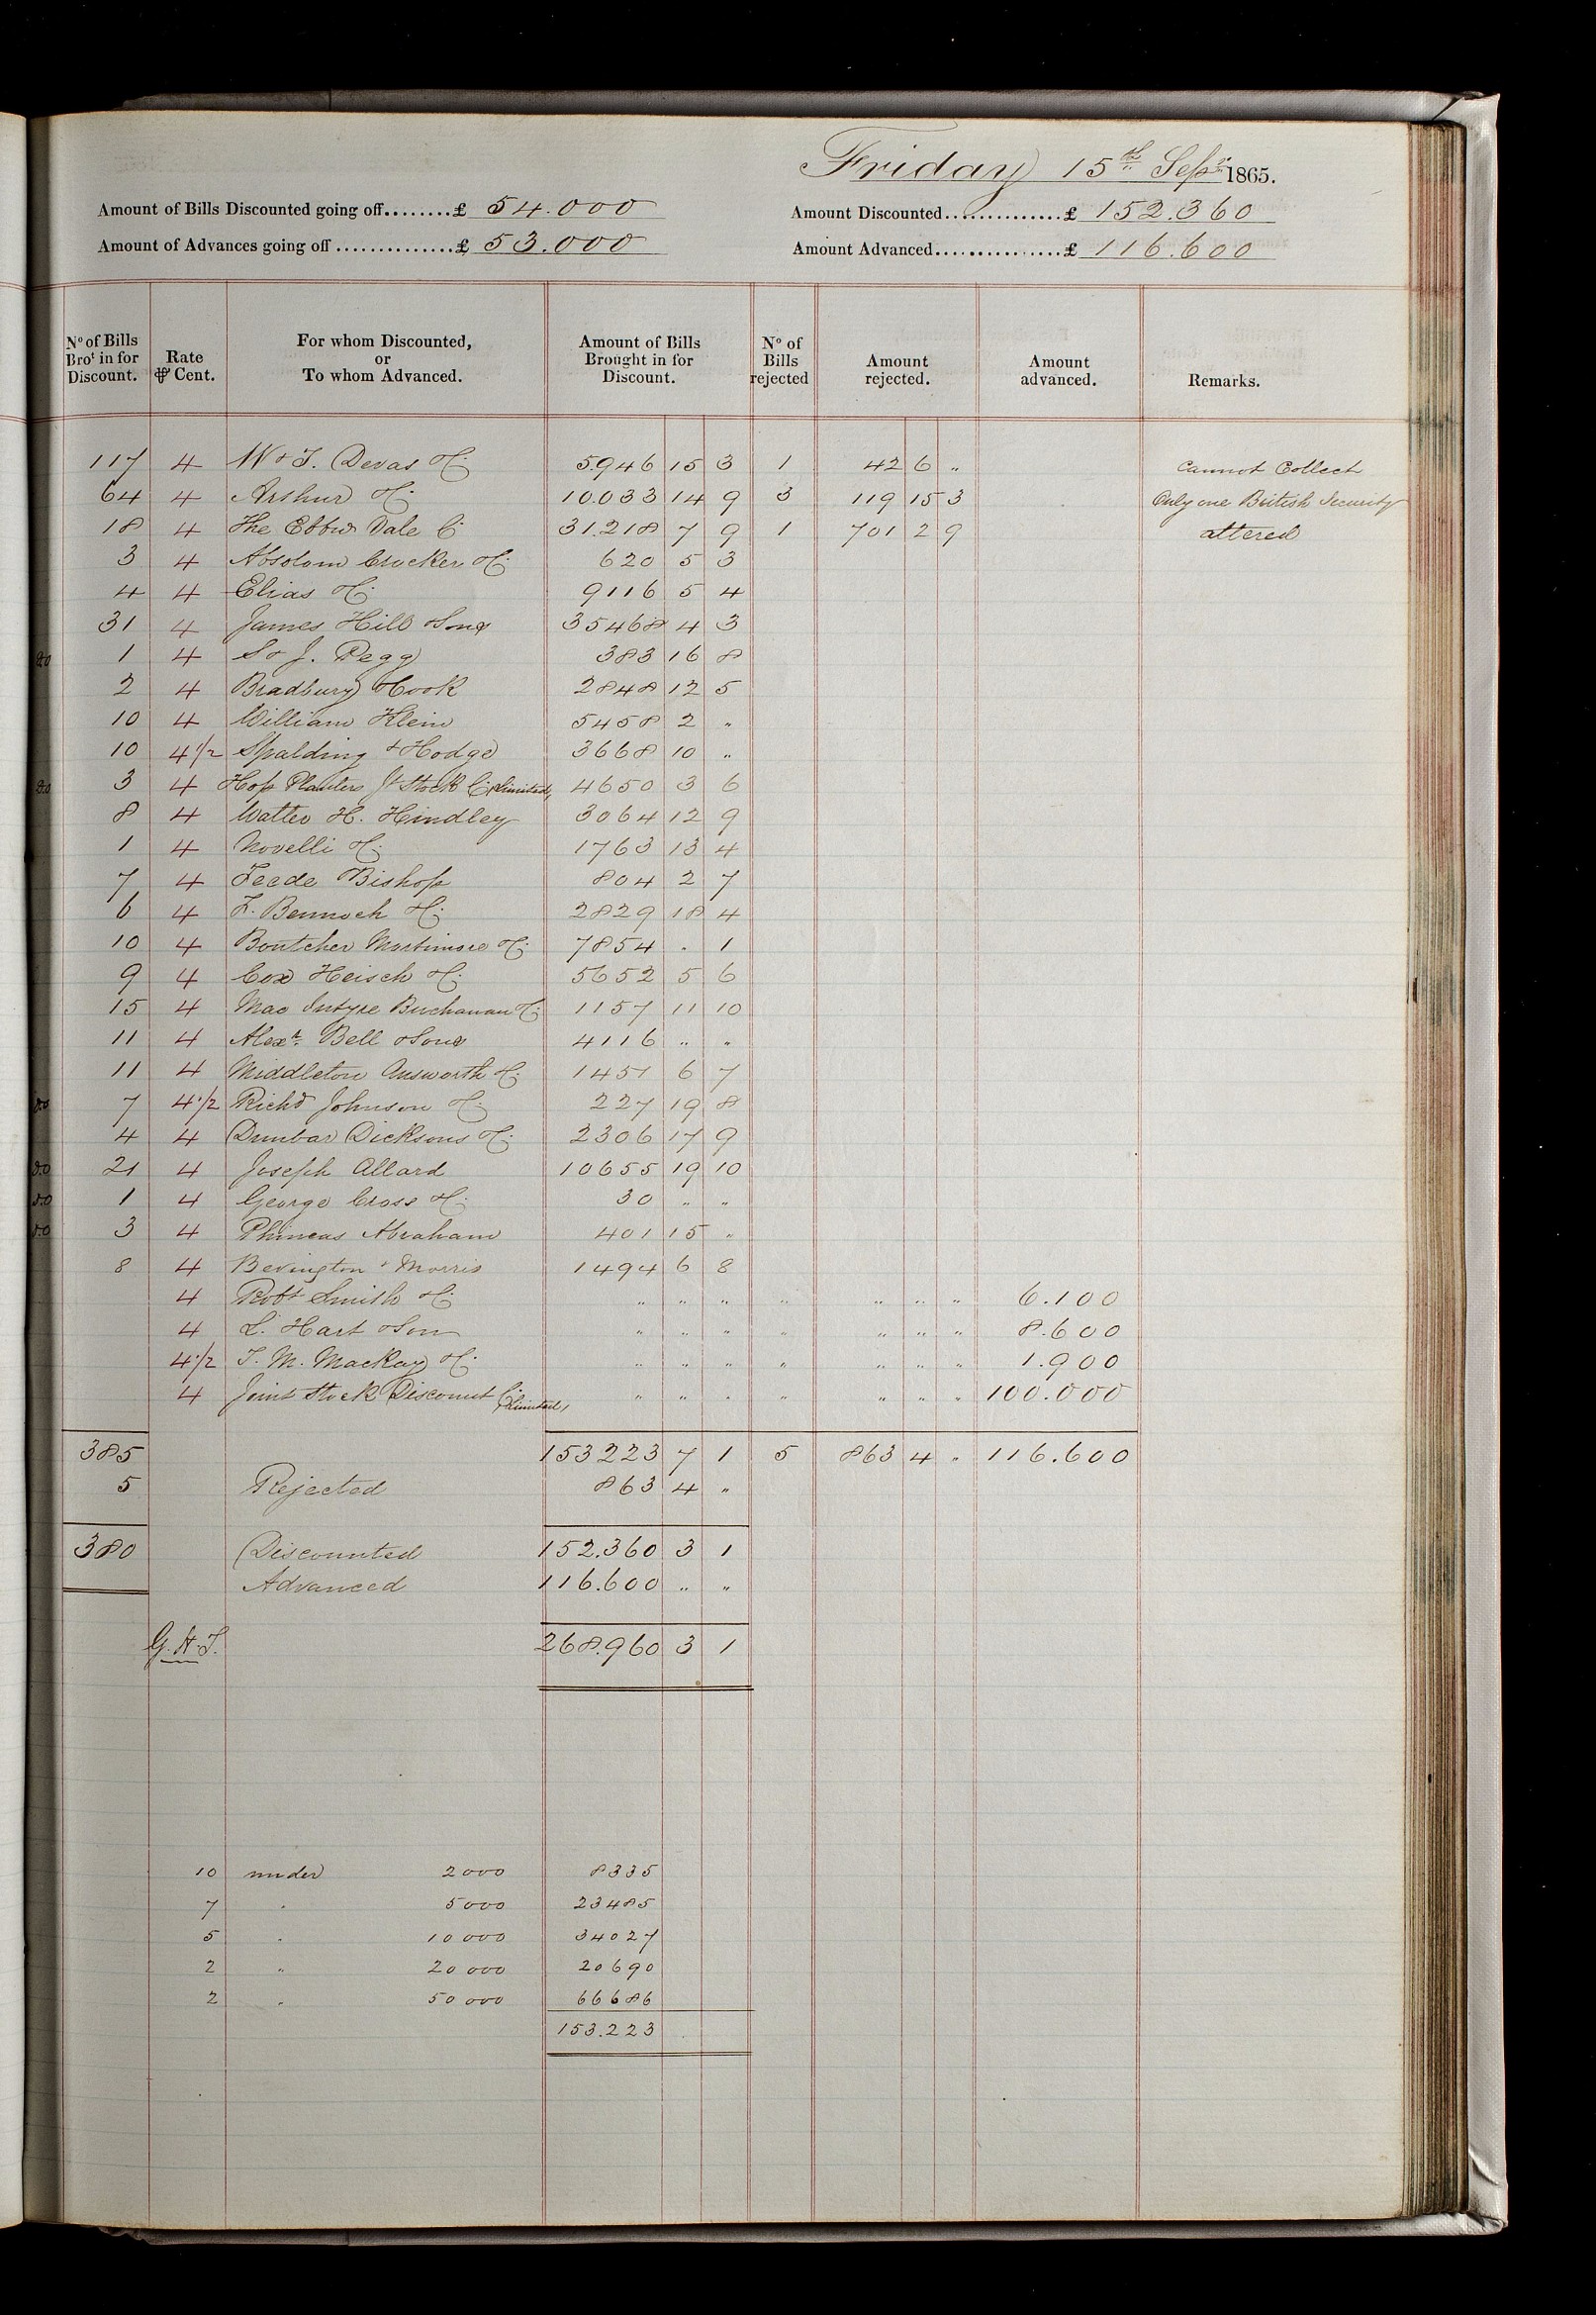 Friday 15th Sept 1865.
Amount of Bills Discounted going off........£ 54.000
Amount Discounted..............£ 152.360
Amount of Advances going off..............£ 53.000
Amount Advanced...............£ 116.600
No of Bills Brot in for Discount. Rate ⅌ Cent. For whom Discounted, or To whom Advanced. Amount of Bills Brought in for Discount. No of Bills rejected Amount rejected. Amount advanced. Remarks.
117 4 W & T. Devas & Co 5.946 15 3 1 42 6 " Cannot Collect
64 4 Arthur & Co 10.033 14 9 3 119 15 3 Only one British Security
18 4 The Ebbw Vale Co 31.218 7 9 1 701 2 9 altered
3 4 Absolom Crocker & Co 620 5 3
4 4 Elias & Co 9116 5 4
31 4 James Hill & Sons 35468 4 3
do 1 4 S & J. Pegg 383 16 8
2 4 Bradbury & Cook 2848 12 5
10 4 William Klein 5458 2 "
10 4 1/2 Spalding & Hodge 3668 10 "
do 3 4 Hop Planters Jt Stock Co Limited, 4650 3 6
8 4 Walter H. Hindley 3064 12 9
1 4 Novelli & Co 1763 13 4
7 4 Bishop 804 2 7
6 4 F. Bennoch & Co 2829 18 4
10 4 Boutcher Mortimore & Co 7854 " 1
9 4 Cox Heisch & Co 5652 5 6
15 4 Mac Intyre Buchanan & Co 1157 11 10
11 4 Alexr Bell & Sons 4116 " "
11 4 Middleton Answorth & Co 1451 6 7
do 7 4 1/2 Richd Johnson & Co 227 19 8
4 4 Dunbar Dicksons & Co 2306 17 9
do 21 4 Joseph Allard 10655 19 10
do 1 4 George Cross & Co 30 " "
do 3 4 Phineas Abraham 401 15 "
8 4 Bevington & Morris 1494 6 8
4 Robt Smith & Co " " " " " " " 6.100
4 L. Hart & Son " " " " " " " 8.600
4 1/2 T. M. Mackay & Co " " " " " " " 1.900
4 Joint Stock Discount Co Limited, " " " " " " " 100.000
385 153223 7 1 5 863 4 " 116.600
5 Rejected 863 4 "
380 Discounted 152.360 3 1
Advanced 116.600 " "
G.H.T. 268.960 3 1
10 under 2000 8335
7 " 5000 23485
5 " 10000 34027
2 " 20000 20690
2 " 50000 66686
153.223